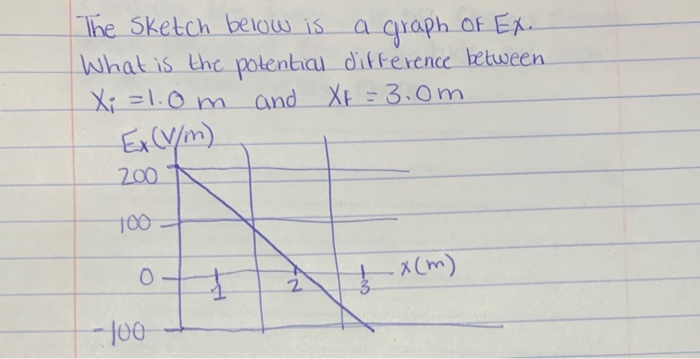 The Sketch below is a graph of Ex.
What is the potential difference between
Xi = 1.0 m and Xf = 3.0 m
Ex (V/m)
200
100
0 1 2 3 x (m)
-100